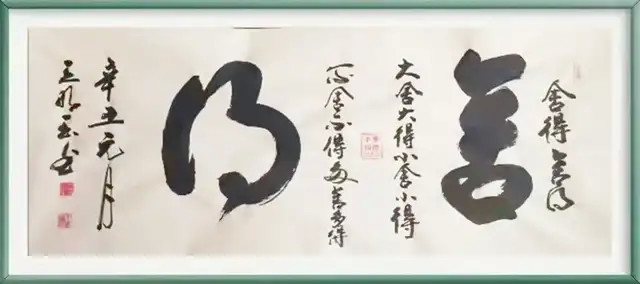 舍得舍得
舍
大舍大得小舍小得
不舍不得多舍多得
得
辛丑元月